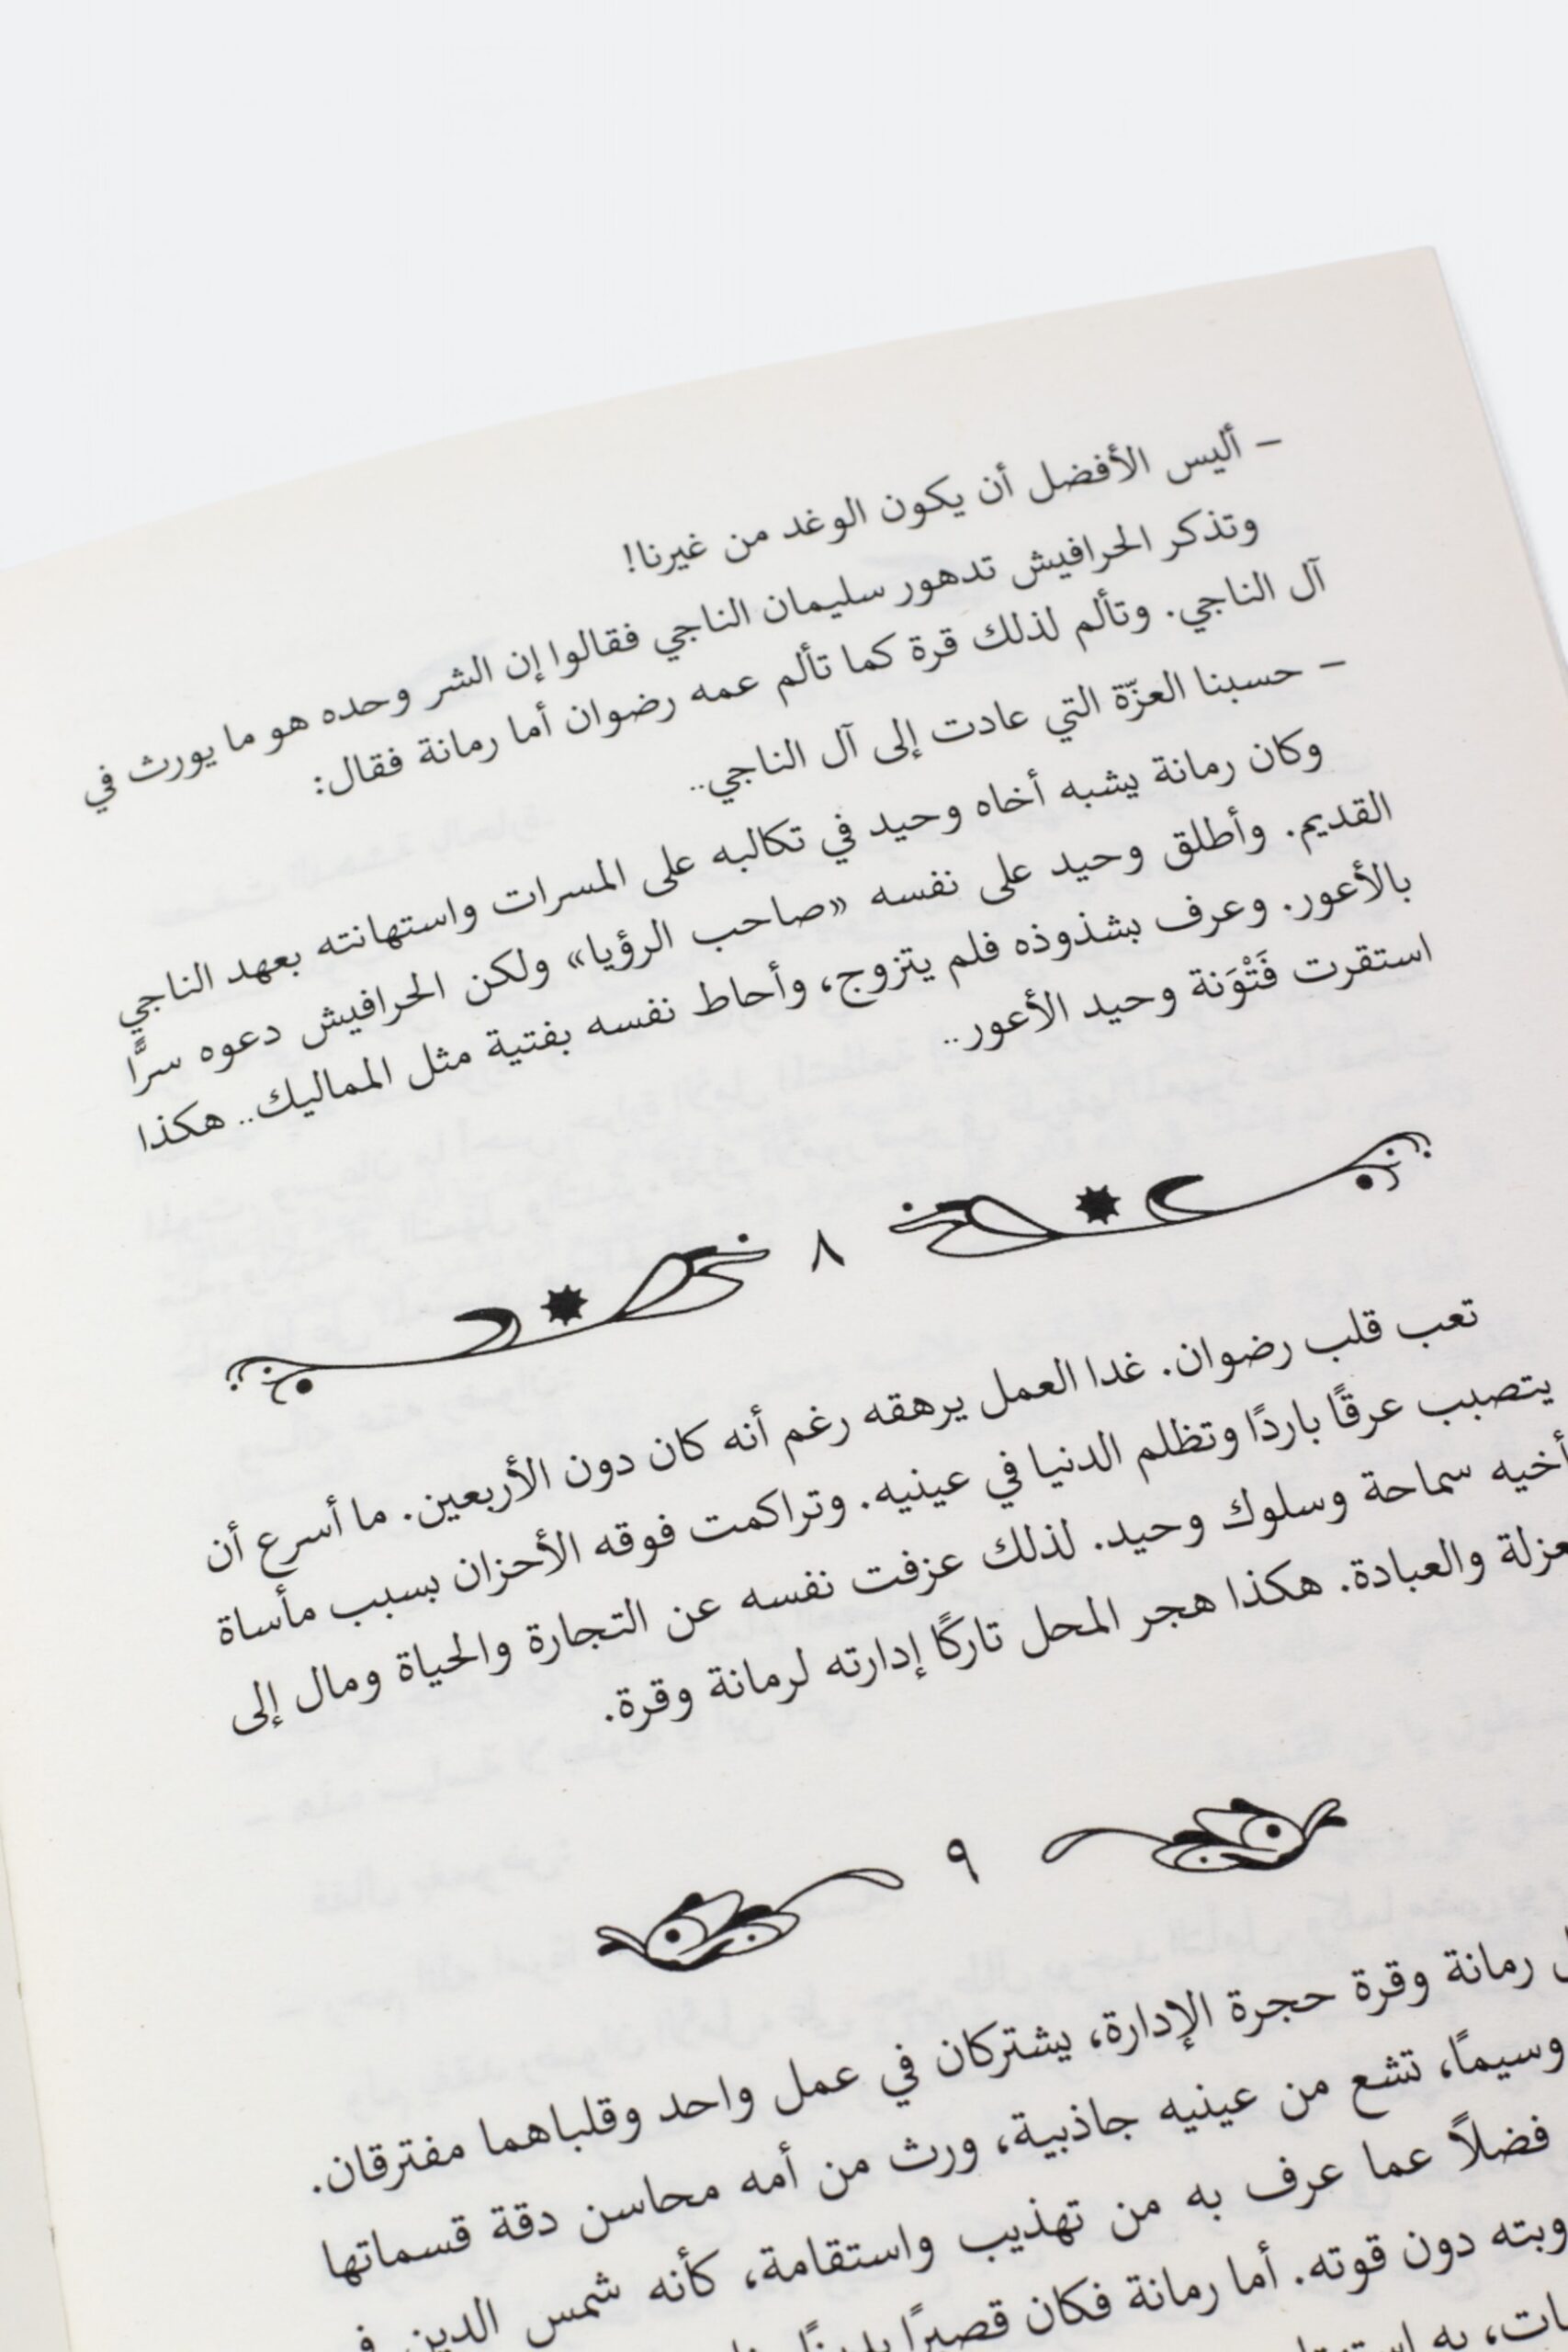 – أليس الأفضل أن يكون الوغد من غيرنا!
وتذكر الحرافيش تدهور سليمان الناجي فقالوا إن الشر وحده هو ما يورث في
آل الناجي. وتألم لذلك قرة كما تألم عمه رضوان أما رمانة فقال:
– حسبنا العزّة التي عادت إلى آل الناجي..
وكان رمانة يشبه أخاه وحيد في تكالبه على المسرات واستهانته بعهد الناجي
القديم. وأطلق وحيد على نفسه «صاحب الرؤيا» ولكن الحرافيش دعوه سرًّا
بالأعور. وعرف بشذوذه فلم يتزوج، وأحاط نفسه بفتية مثل المماليك.. هكذا
استقرت فَتْوَنة وحيد الأعور..
٨
تعب قلب رضوان. غدا العمل يرهقه رغم أنه كان دون الأربعين. ما أسرع أن
يتصبب عرقًا باردًا وتظلم الدنيا في عينيه. وتراكمت فوقه الأحزان بسبب مأساة
أخيه سماحة وسلوك وحيد. لذلك عزفت نفسه عن التجارة والحياة ومال إلى
والعبادة. هكذا هجر المحل تاركًا إدارته لرمانة وقرة.
٩
رمانة وقرة حجرة الإدارة، يشتركان في عمل واحد وقلباهما مفترقان.
وسيمًا، تشع من عينيه جاذبية، ورث من أمه محاسن دقة قسماتها
فضلاً عما عرف به من تهذيب واستقامة، كأنه شمس الدين
دون قوته. أما رمانة فكان قصيرًا
به